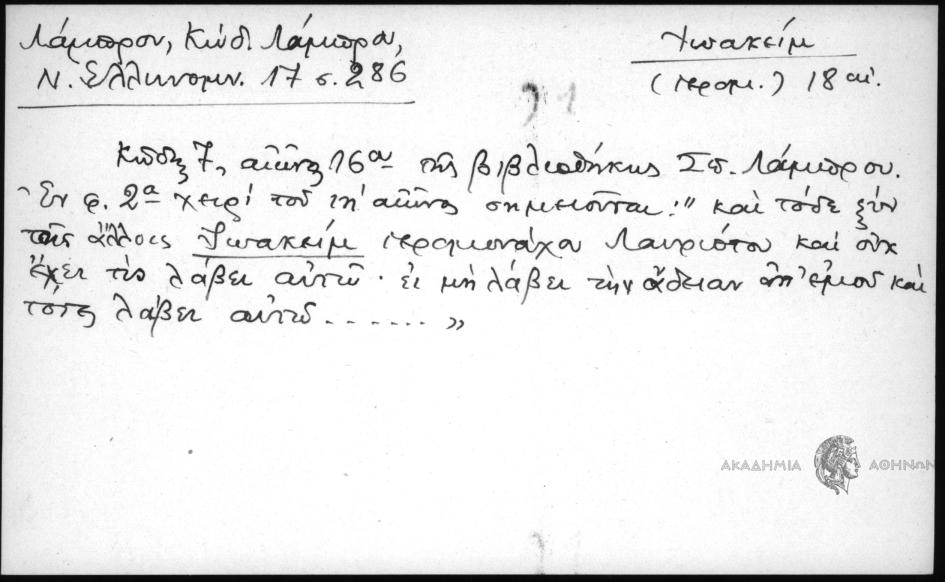 Λάμπρου, Κώδ. Λάμπρου,
Ν. Ἑλληνομν. 17 σ. 286
Ἰωακείμ
(ἱερομ.) 18 αἰ.
Κώδιξ 7, αἰῶνος 16ου τῆς βιβλιοθήκης Σπ. Λάμπρου.
Ἐν φ. 2α χειρί τοῦ ιη΄ αἰῶνος σημειοῦται: " καὶ τόδε σὺν
τοῖς ἄλλοις Ἰωακείμ ἱερομονάχου Λαυριώτου καὶ οὐκ
ἔχει τὶς λάβει αὐτῶ · εἰ μὴ λάβει τὴν ἄδειαν ἀπ' ἐμοῦ καὶ
τότε λάβει αὐτῶ ....... »
ΑΚΑΔΗΜΙΑ ΑΘΗΝΩΝ